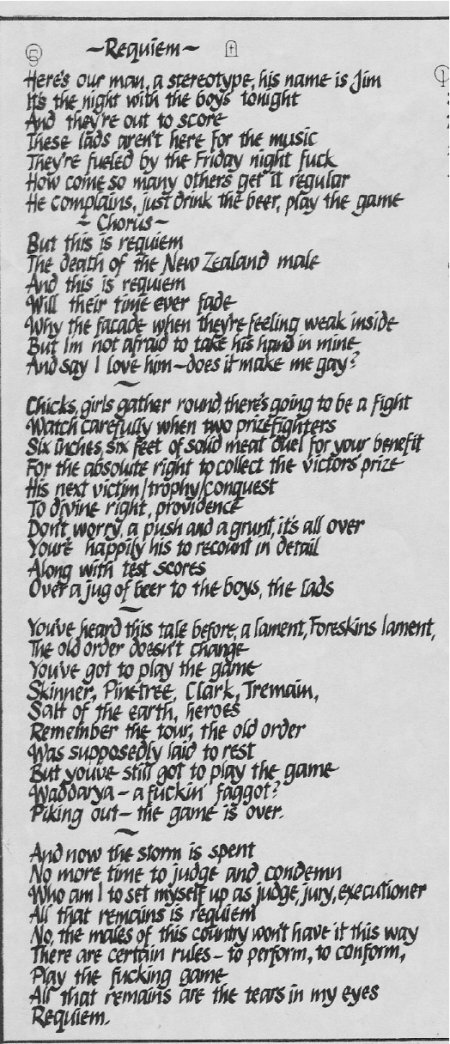 5 ~Requiem~
Here's our man, a stereotype, his name is Jim
It's the night with the boys tonight
And they're out to score
These lads aren't here for the music
They're fueled by the Friday night fuck
How come so many others get it regular
He complains, just drink the beer, play the game
~ Chorus ~
But this is requiem
The death of the New Zealand male
And this is requiem
Will their time ever fade
Why the facade when they're feeling weak inside
But Im not afraid to take his hand in mine
And say I love him - does it make me gay?
~
Chicks, girls gather round, there's going to be a fight
Watch carefully when two prizefighters
Six inches, six feet of solid meat duel for your benefit
For the absolute right to collect the victors prize
His next victim/trophy/conquest
To divine right, providence
Don't worry, a push and a grunt, it's all over
You're happily his to recount in detail
Along with test scores
Over a jug of beer to the boys, the lads
~
You've heard this tale before, a lament, Foreskins lament,
The old order doesn't change
You've got to play the game
Skinner, Pinetree, Clark, Tremain,
Salt of the earth, heroes
Remember the tour, the old order
Was supposedly laid to rest
But you've still got to play the game
Waddarya - a fuckin' faggot?
Piking out - the game is over.
~
And now the storm is spent
No more time to judge and condemn
Who am I to set myself up as judge, jury, executioner
All that remains is requiem
No, the males of this country won't have it this way
There are certain rules - to perform, to conform,
Play the fucking game
All that remains are the tears in my eyes
Requiem.